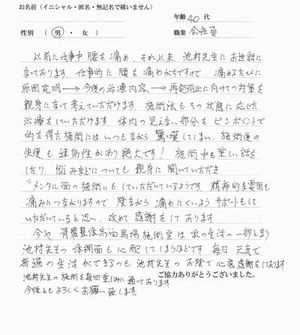 お名前（イニシャル・匿名・無記名で構いません）
年齢 40 代
性別（ 男 ・ 女 ）
職業 会社員
以前に仕事中 腰を痛め、それ以来 池村先生にお世話に
なております。仕事的に腰を痛めがちですので、痛めるたびに
原因究明→今後の治療内容→再発防止に向けての対策を
親身に含て考えていただけます。施術法もその状態に応じた
治療をしていただけます。体内の見えない部分をピンポイントで
的を得た施術にはいつもながら驚嘆してしまい、施術後の
快復も 即効性があり絶大です！施術中も楽しい話を
したり、悩みお尋ねについても親身に聞いていただき
"メンタル面の施術"にもしていただいているようです。精神的な要因も
痛みにつながりますので 陰ながら痛めにくいようサポートもして
いただいていると思い、改めて感謝をしております
今や 高田馬場施術室は 私の生活の一部となり
池村先生の休暇面も心配してしまうほどです 毎日 元気で
普通の生活ができるのも池村先生のお陰で心底感謝をしております
池村先生の施術を毎回楽しみに通っております
今後ともよろしくお願い致します。
ご協力ありがとうございました。